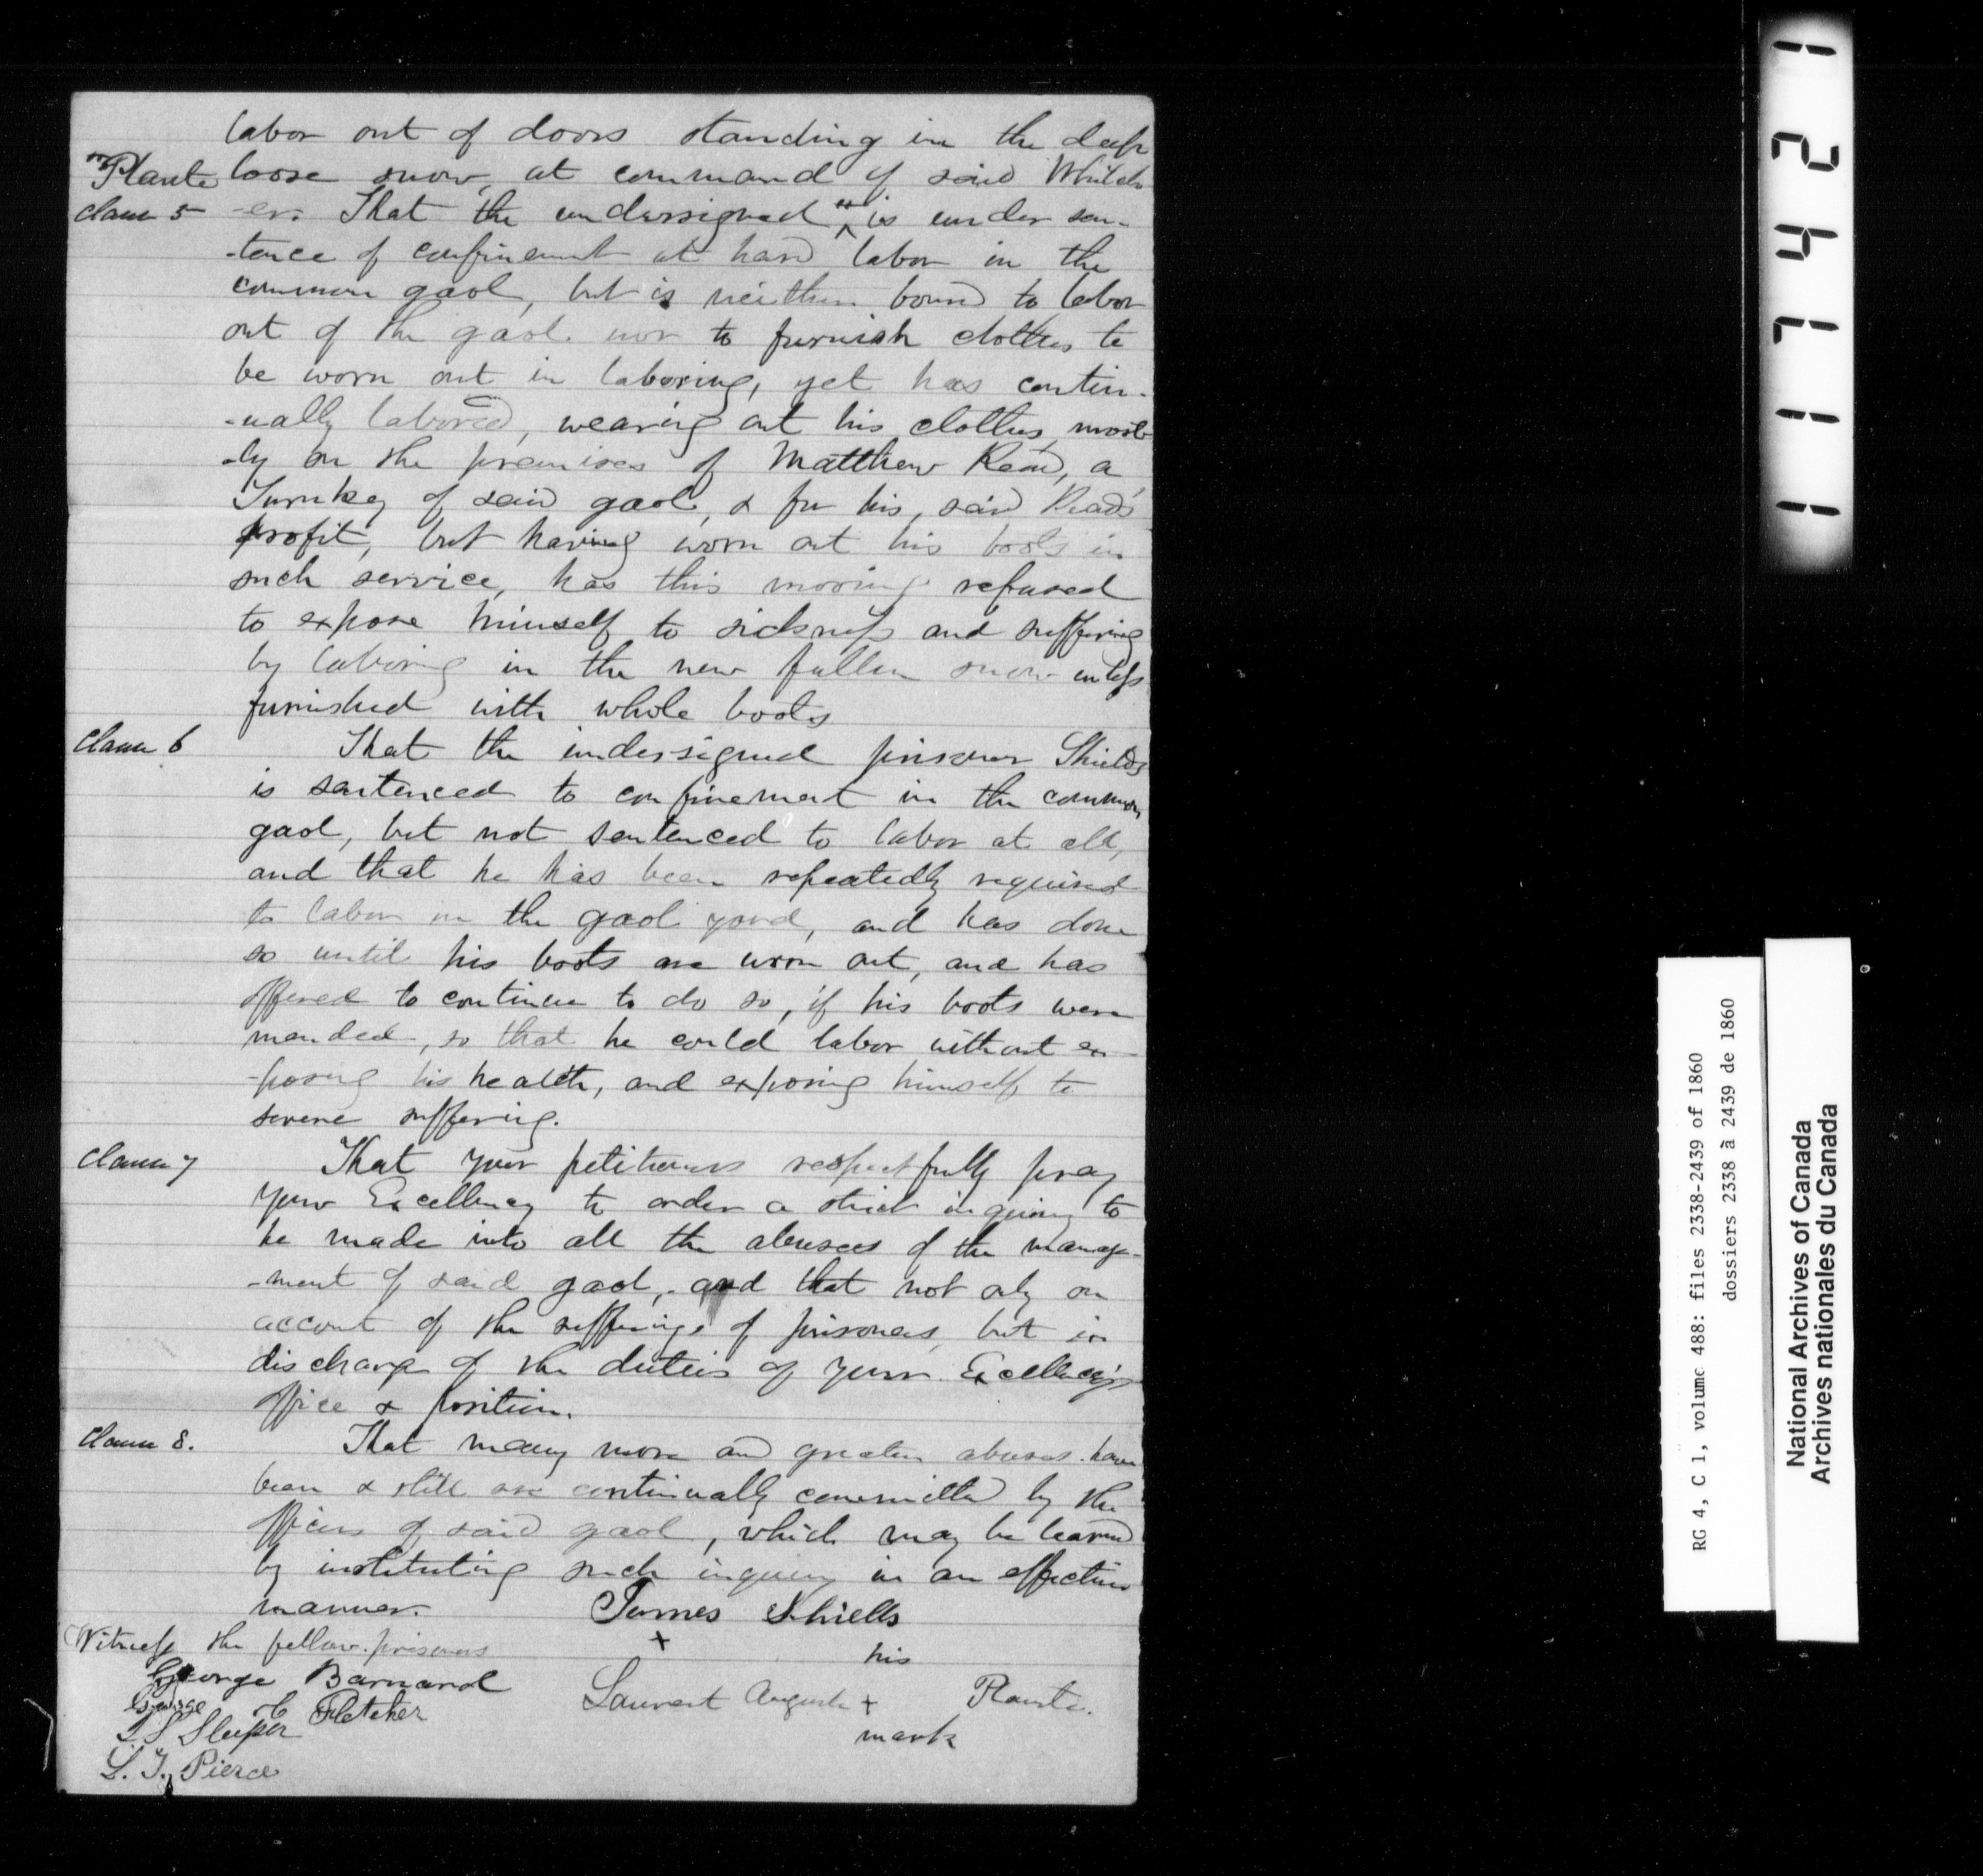 labor out of doors standing in the deep
"Plante loose snow, at command of said Whitch-
clause 5 -er. That the undersigned " is under sen-
-tence of confinement at hard labor in the
common gaol, but is neither bound to labor
out of the gaol nor to furnish clothes to
be worn out in laboring, yet has contin-
-ually labored, wearing out his clothes, most-
-ly on the premises of Matthew Read, a
Turnkey of said gaol, & for his, said Read's
profit, but having worn out his boots in
such service, has this morning refused
to expose himself to sickness and suffering
by laboring in the new fallen snow unless
furnished with whole boots
clause 6 That the undersigned prisoner Shields
is sentenced to confinement in the common
gaol, but not sentenced to labor at all,
and that he has been repeatedly required
to labor in the gaol yard, and has done
so until his boots are worn out, and has
offered to continue to do so, if his boots were
mended, so that he could labor without ex-
-posing his health, and exposing himself to
severe suffering.
clause 7 That your petitioners respectfully pray
your Excellency to order a strict inquiry to
be made into all the abuses of the manage-
-ment of said gaol, and that not only on
account of the sufferings of prisoners, but in
discharge of the duties of your Excellency's
office & position.
clause 8. That many more and greater abuses have
been & still are continually committed by the
officers of said gaol, which may be learned
by instituting such inquiry in an effective
manner. James Shiells
Witness the fellow-prisoners + his
George Barnard Laurent August + Plante.
George C Fletcher mark
T S Sleeper
L. T. Pierce
11742 1
RG 4, C 1, volume 488: files 2338-2439 of 1860
dossiers 2338 à 2439 de 1860
National Archives of Canada
Archives nationales du Canada